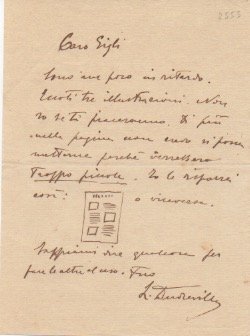 2555
Caro Gigli
Sono ... poco in ritardo.
Eccoti tre illustrazioni. Non
so se ti piaceranno. Di più
nella pagina non credo si possa
metterne perché verrebbero
troppo piccole. Io le disporrei
così:
o viceversa.
Sappiami dire qualcosa per
fare le altre al caso. Tuo
L. Dudreville